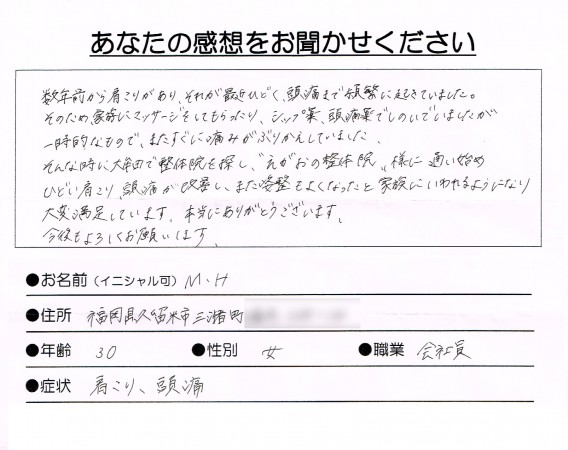 あなたの感想をお聞かせください
数年前から肩こりがあり、それが最近ひどく、頭痛まで頻繁に起きていました。
そのため家族にマッサージをしてもらったり、シップ薬、頭痛薬でしのいでいましたが
一時的なもので、またすぐに痛みがぶりかえしていました、
そんな時に大牟田で整体院を探し、"えがおの整体院"様に通い始め
ひどい肩こり、頭痛が改善し、また姿勢もよくなったと家族にいわれるようになり
大変満足しています。本当にありがとうございます。
今後もよろしくお願いします。
●お名前（イニシャル可） M・H
●住所 福岡県久留米市三潴町
●年齢 30 ●性別 女 ●職業 会社員
●症状 肩こり、頭痛